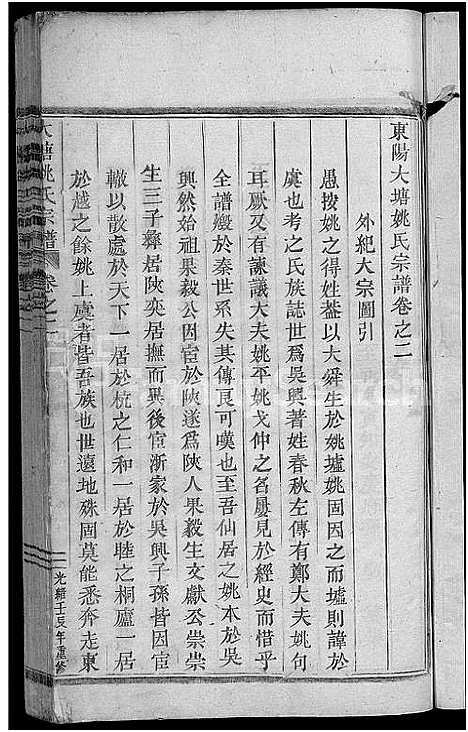 東陽大塘姚氏宗譜卷之二
外紀大宗圖引
愚按姚之得姓葢以大舜生於姚墟姚固因之而墟則諱於
虞也考之氏族誌世爲吳興著姓春秋左傳有鄭大夫姚句
耳厥又有諫議大夫姚平姚戈仲之名屢見於經史而惜乎
全譜燬於秦世系失其傳良可嘆也至吾仙居之姚本於吳
興然始祖果毅公因宦於陝遂爲陝人果毅生文獻公崇崇
生三子彝居陝奕居撫而异後宦浙家於吳興子孫皆因宦
轍以散處於天下一居於杭之仁和一居於睦之桐廬一居
於越之餘姚上虞者皆吾族也世遠地殊固莫能悉奔走東
大塘姚氏宗譜
卷之二
光緒壬辰年重修